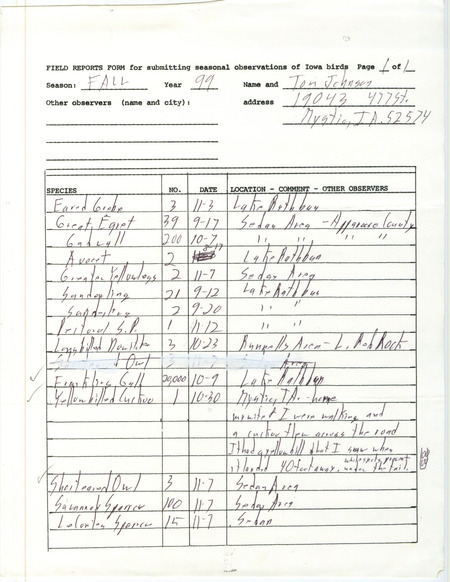 FIELD REPORTS FORM for submitting seasonal observations of Iowa birds Page 1 of 1
Season: FALL Year 99 Name and Tom Johnson
Other observers (name and city): address 19043 477 St.
Mystic, IA. 52574
SPECIES NO. DATE LOCATION - COMMENT - OTHER OBSERVERS
Eared Grebe 3 11-3 Lake Rathbun
Great Egret 39 9-17 Sedan Area - Appanoose County
Gadwall 200 10-7 " " " "
Avocet 2 Lake Rathbun
Greater Yellowlegs 2 11-7 Sedan Area
Sanderling 21 9-12 Lake Rathbun
Sanderling 2 9-20 " "
Pectoral S.P. 1 11-12 " "
Longbilled Dowitcher 3 10-23 Runnells Area - L. Red Rock
Owl 3 11-7 Area
Franklins Gull 20,000 10-9 Lake Rathbun
Yellowbilled Cuckoo 1 10-30 Mystic, IA. - home
my wife & I were walking and
a cuckoo flew across the road
It had a yellow bill that I saw when
it landed 40 feet away, white spots under the tail.
Shorteared Owl 3 11-7 Sedan Area
Savannah Sparrow 100 11-7 Sedan Area
LeContes Sparrow 15 11-7 Sedan